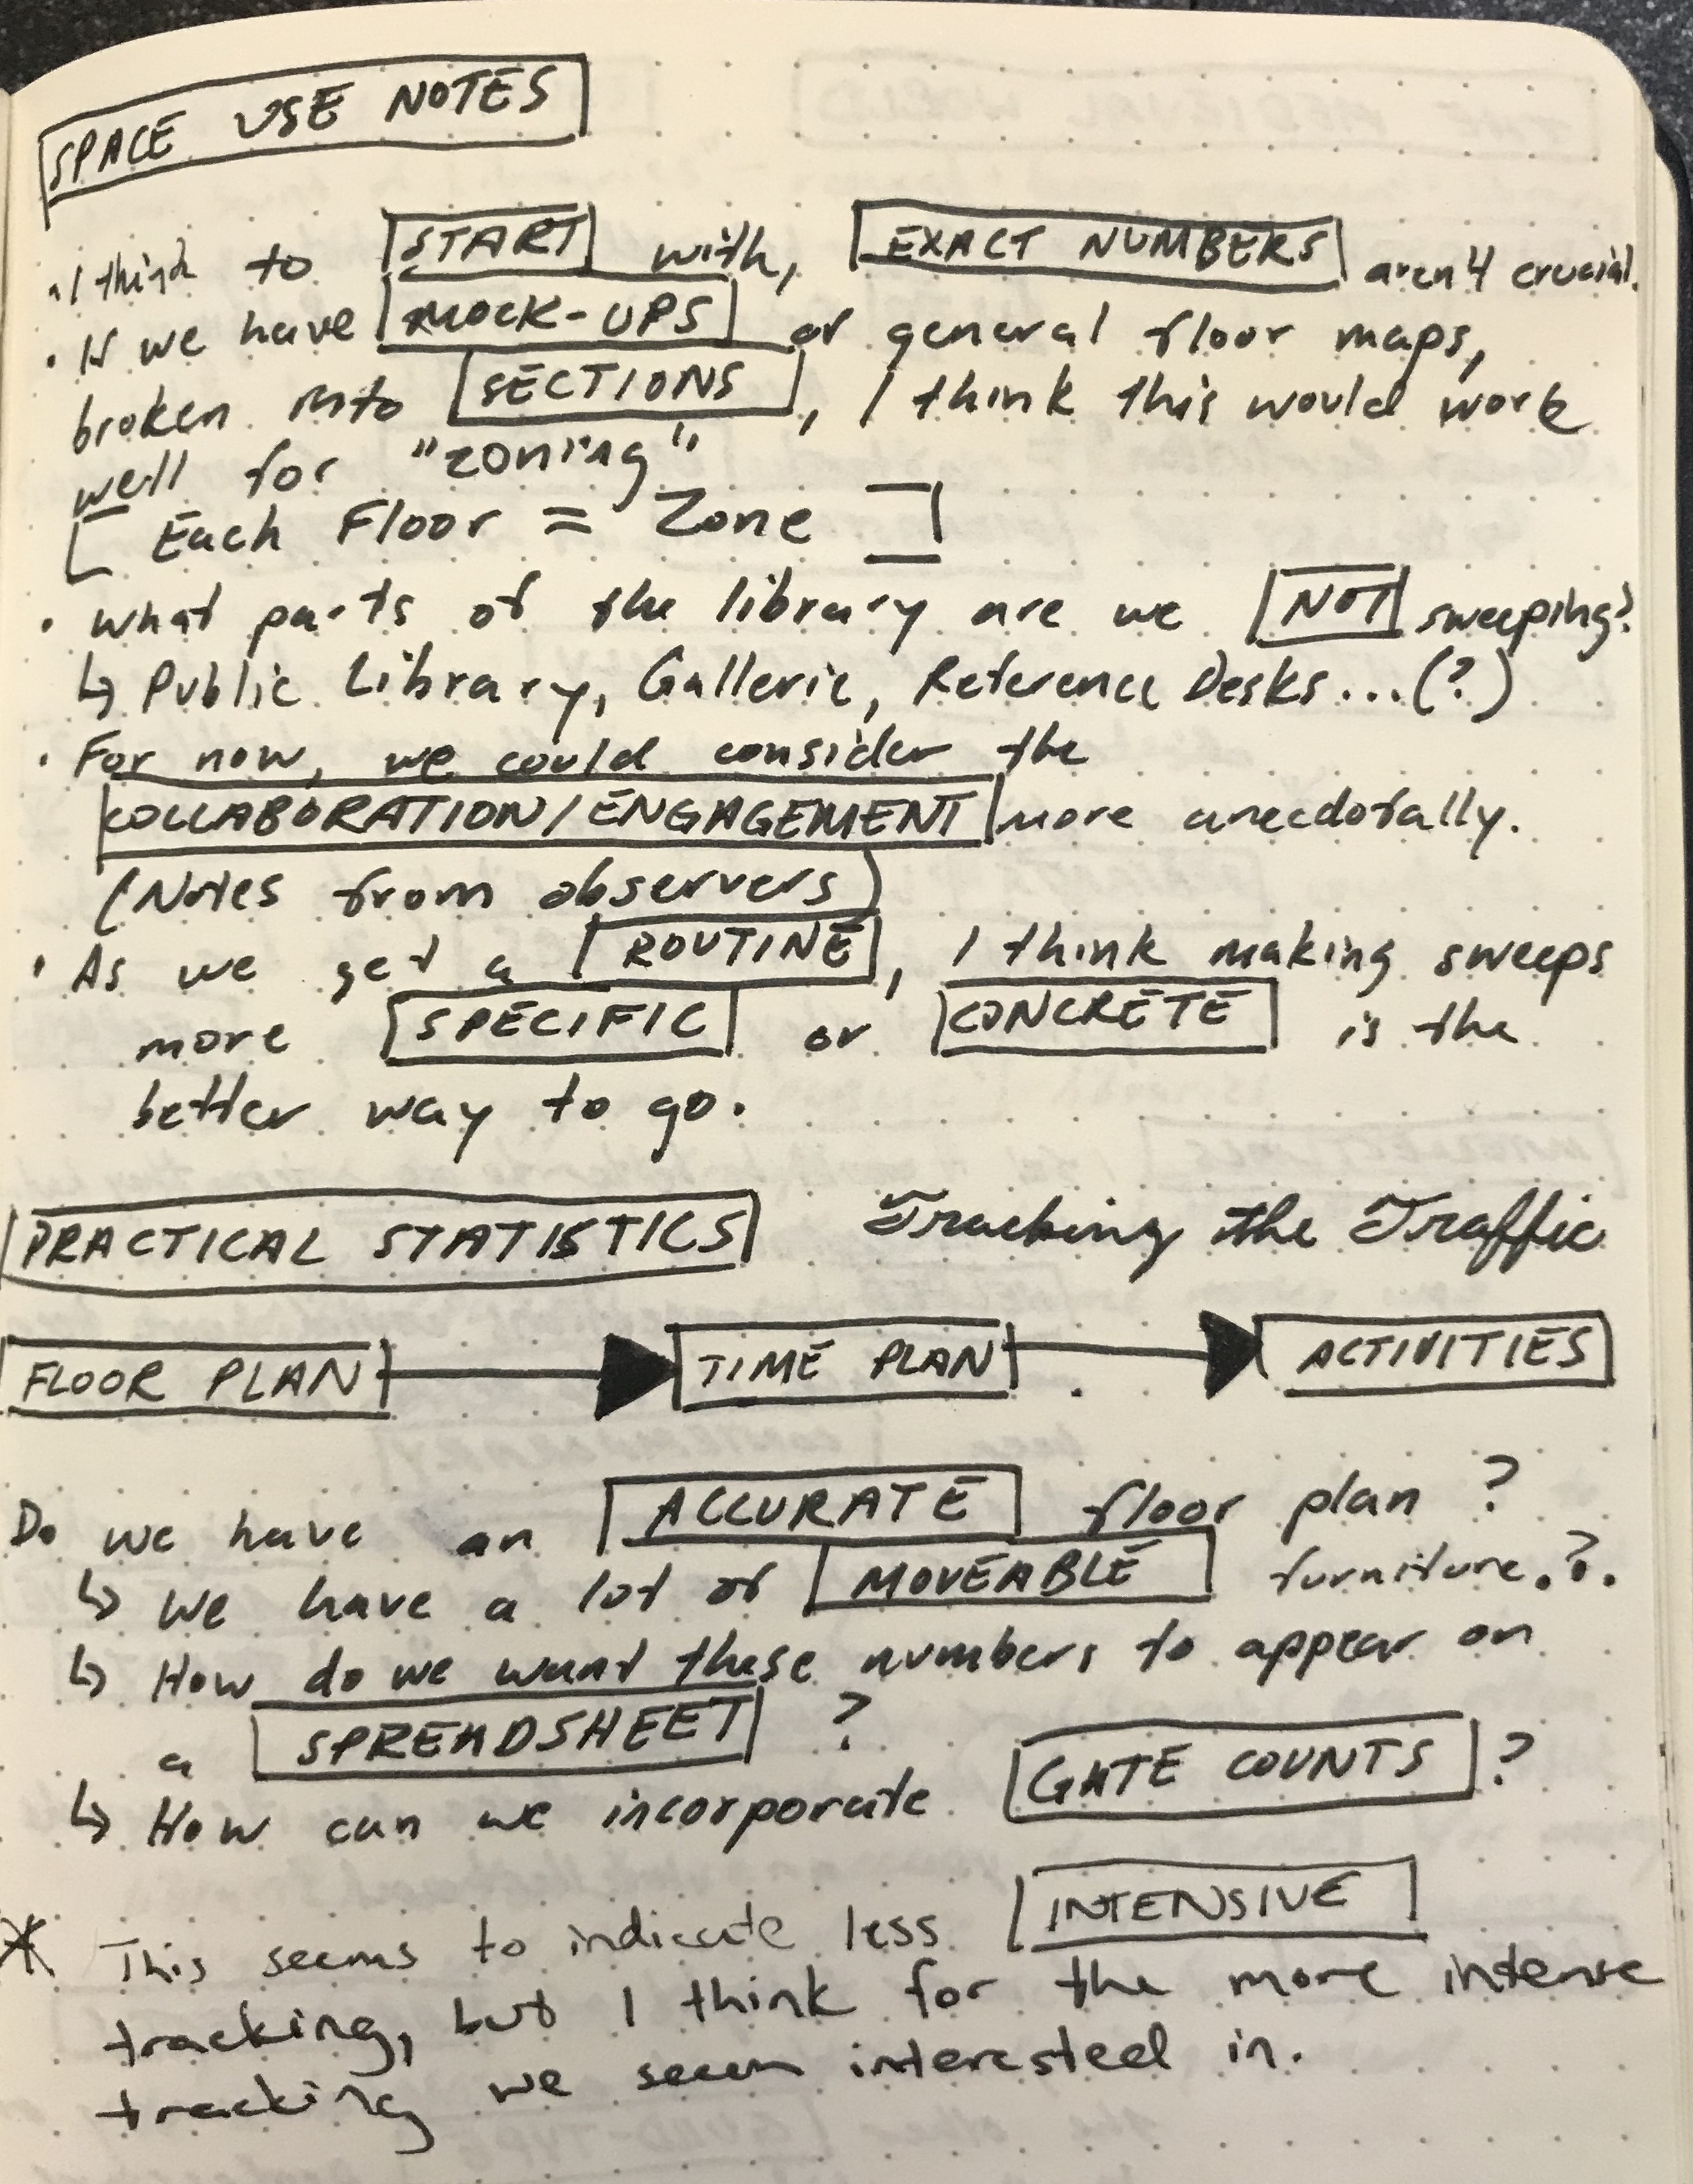 SPACE USE NOTES
• I think to START with, EXACT NUMBERS aren't crucial.
• If we have MOCK-UPS of general floor maps,
broken into SECTIONS, I think this would work
well for "zoning"
[Each Floor = Zone]
• What parts of the library are we NOT sweeping?
↳ Public Library, Gallerie, Reference Desks...(?)
• For now, we could consider the
COLLABORATION/ENGAGEMENT more anecdotally.
(Notes from observers)
• As we get a ROUTINE, I think making sweeps
more SPECIFIC or CONCRETE is the
better way to go.
PRACTICAL STATISTICS Tracking the Traffic
FLOOR PLAN → TIME PLAN → ACTIVITIES
Do we have an ACCURATE floor plan?
↳ We have a lot of MOVEABLE furniture.?.
↳ How do we want these numbers to appear on
a SPREADSHEET?
↳ How can we incorporate GATE COUNTS?
* This seems to indicate less INTENSIVE
tracking, but I think for the more intense
tracking we seem interested in.